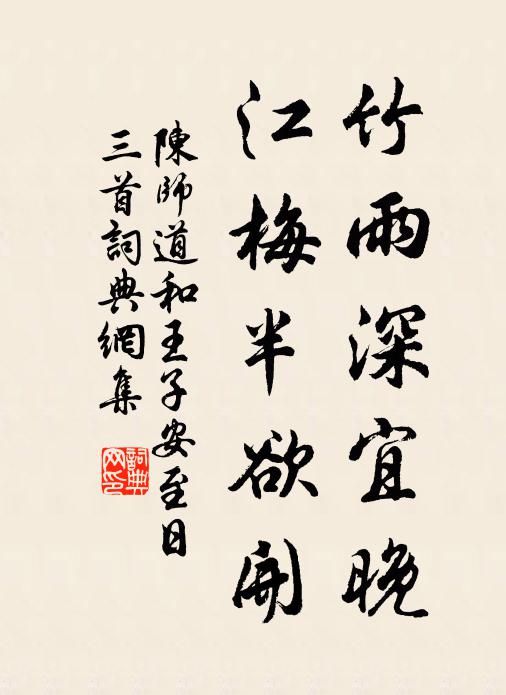 竹雨深宜晚
江梅半欲開
陳師道和王子安至日
三首詞典網集
詞典網印